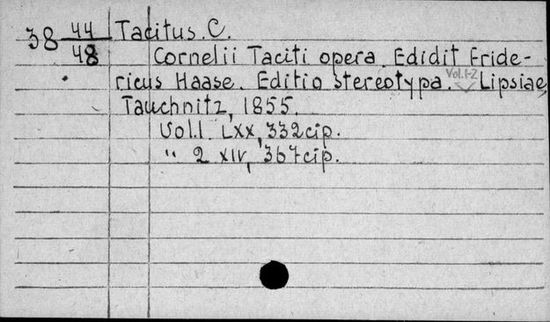 38 44/48 Tacitus. C.
Cornelii Taciti opera. Edidit Fride-
ricus Haase. Editio stereotypa. Vol.1-2 Lipsiae,
Tauchnitz, 1855.
Vol.1. LXX, 332 cip.
" 2 XIV, 367 cip.